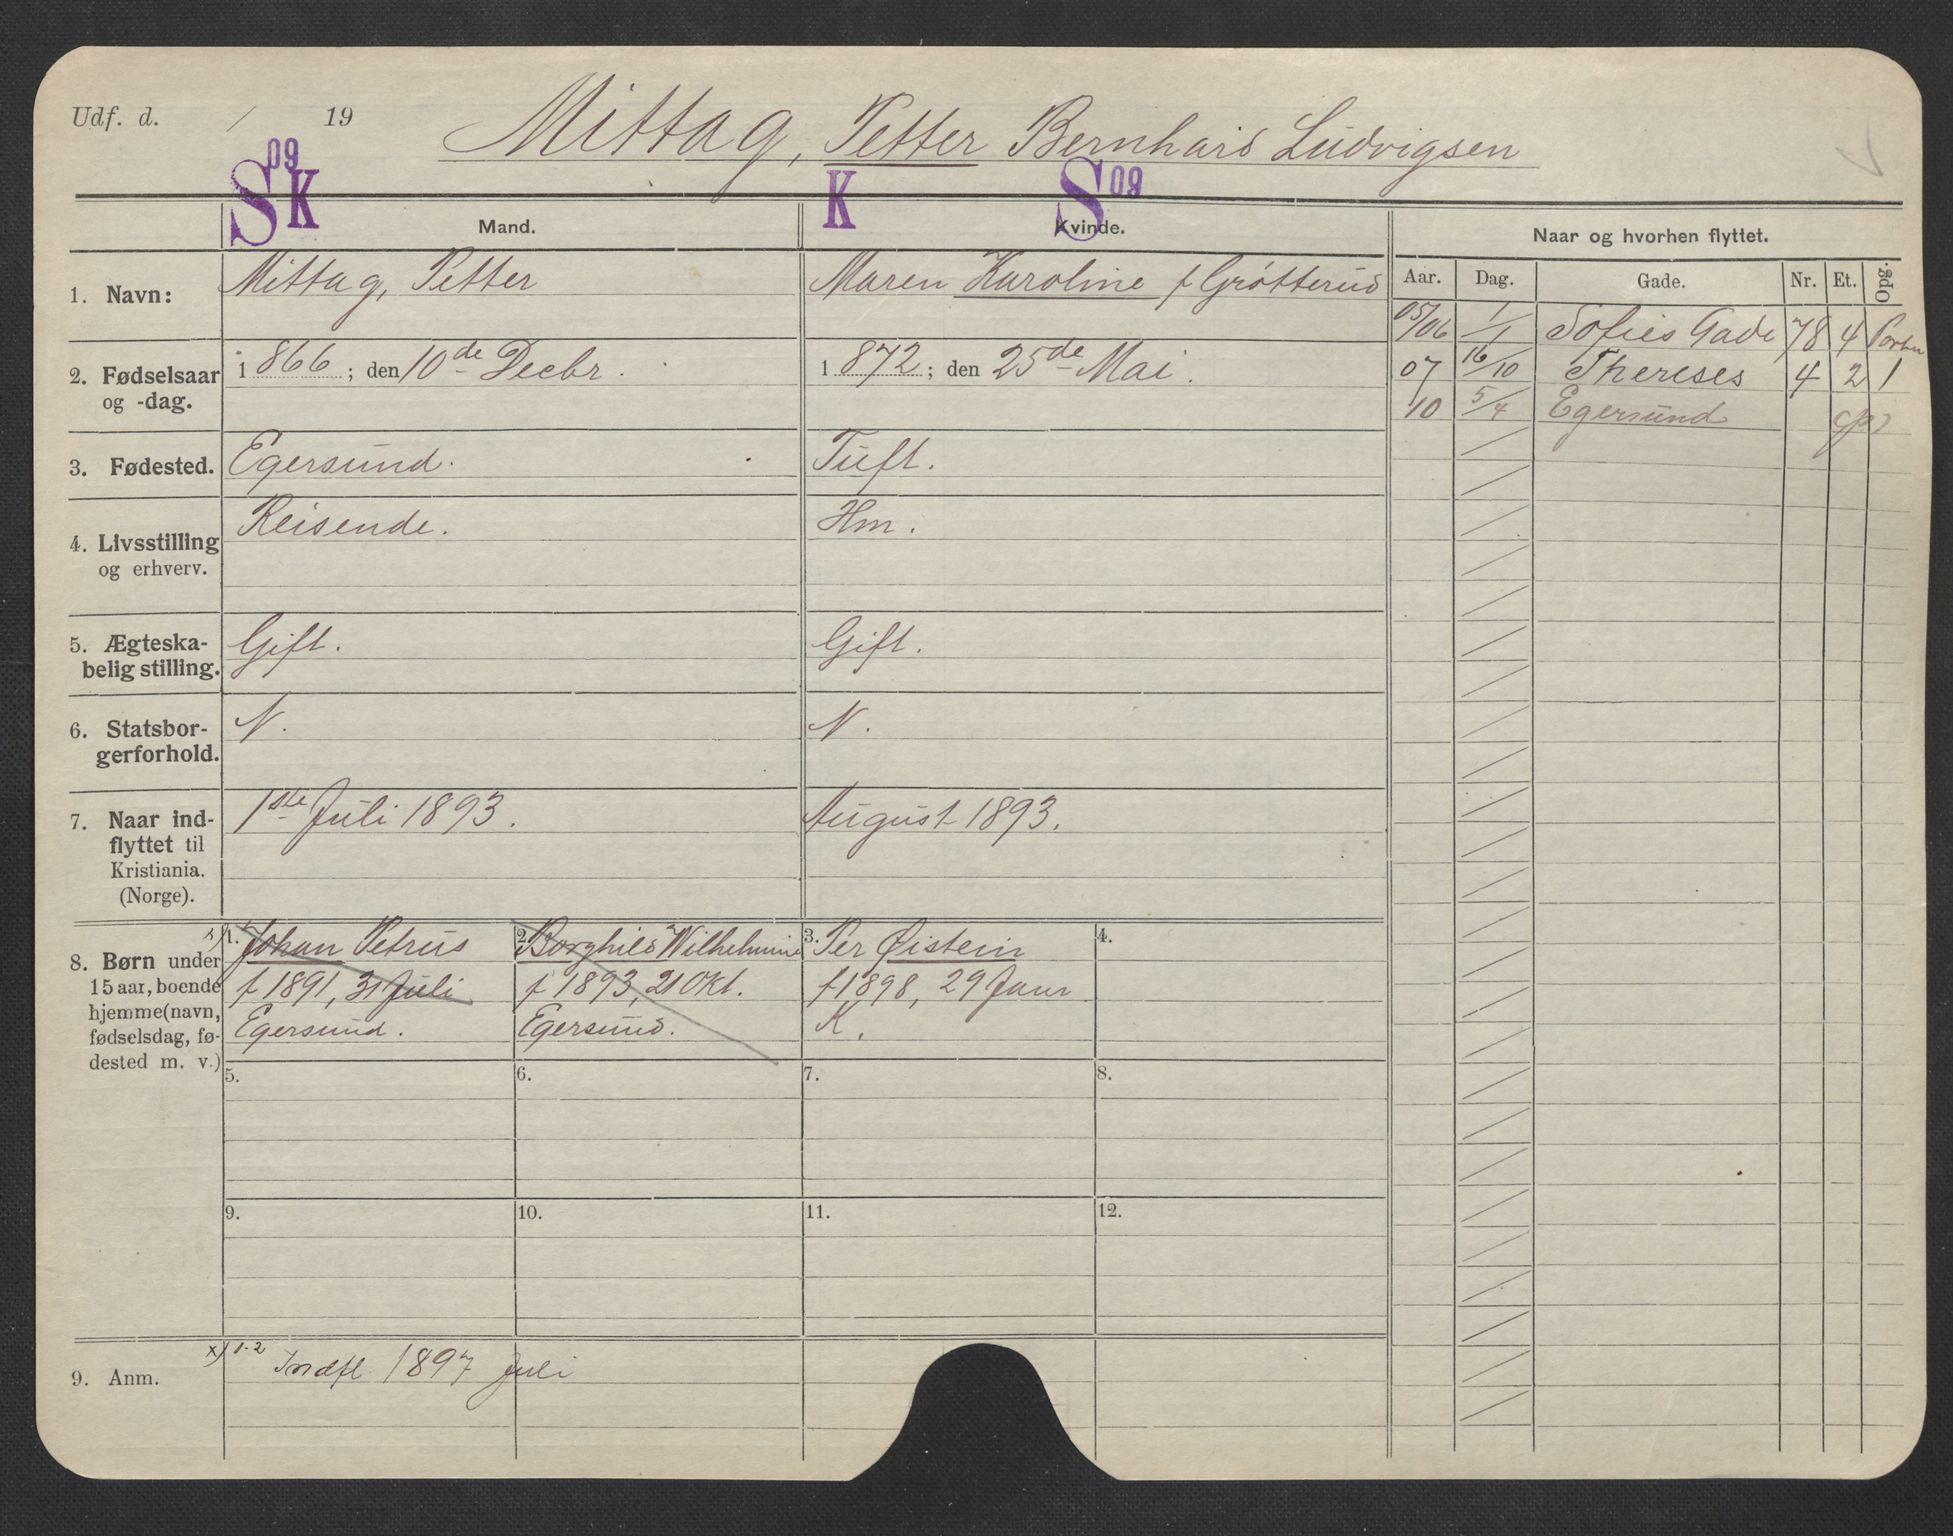 Udf. d. / 19
Mittag, Petter Bernhard Ludvigsen
S 09 K
K S 09
Mand.
Kvinde.
Naar og hvorhen flyttet.
Aar. Dag. Gade. Nr. Et. Opg.
05/06 1/1 Sofies Gade 78 4
07 16/10 Thereses 4 2 1
10 5/4 Egersund
1. Navn: Mittag, Petter
Maren Karoline f Grøtterud
2. Fødselsaar og -dag.
i 1866; den 10de Decbr.
i 1872; den 25de Mai.
3. Fødested. Egersund.
Tuft.
4. Livsstilling og erhverv.
Reisende.
Hm.
5. Ægteska-
belig stilling.
Gift.
Gift.
6. Statsbor-
gerforhold.
N.
N.
7. Naar ind-
flyttet til
Kristiania.
(Norge).
1ste Juli 1893.
August 1893.
8. Børn under
15 aar, boende
hjemme (navn,
fødselsdag, fø-
dested m. v.)
x) 1. Johan Petrus
f 1891, 31 Juli
Egersund.
2. Borghild Wilhelmine
f 1893, 21 Okt.
Egersund.
3. Per Øistein
f 1898, 29 Janr
K.
4.
5.
6.
7.
8.
9.
10.
11.
12.
9. Anm.
x) 1-2 Indfl. 1897 Juli